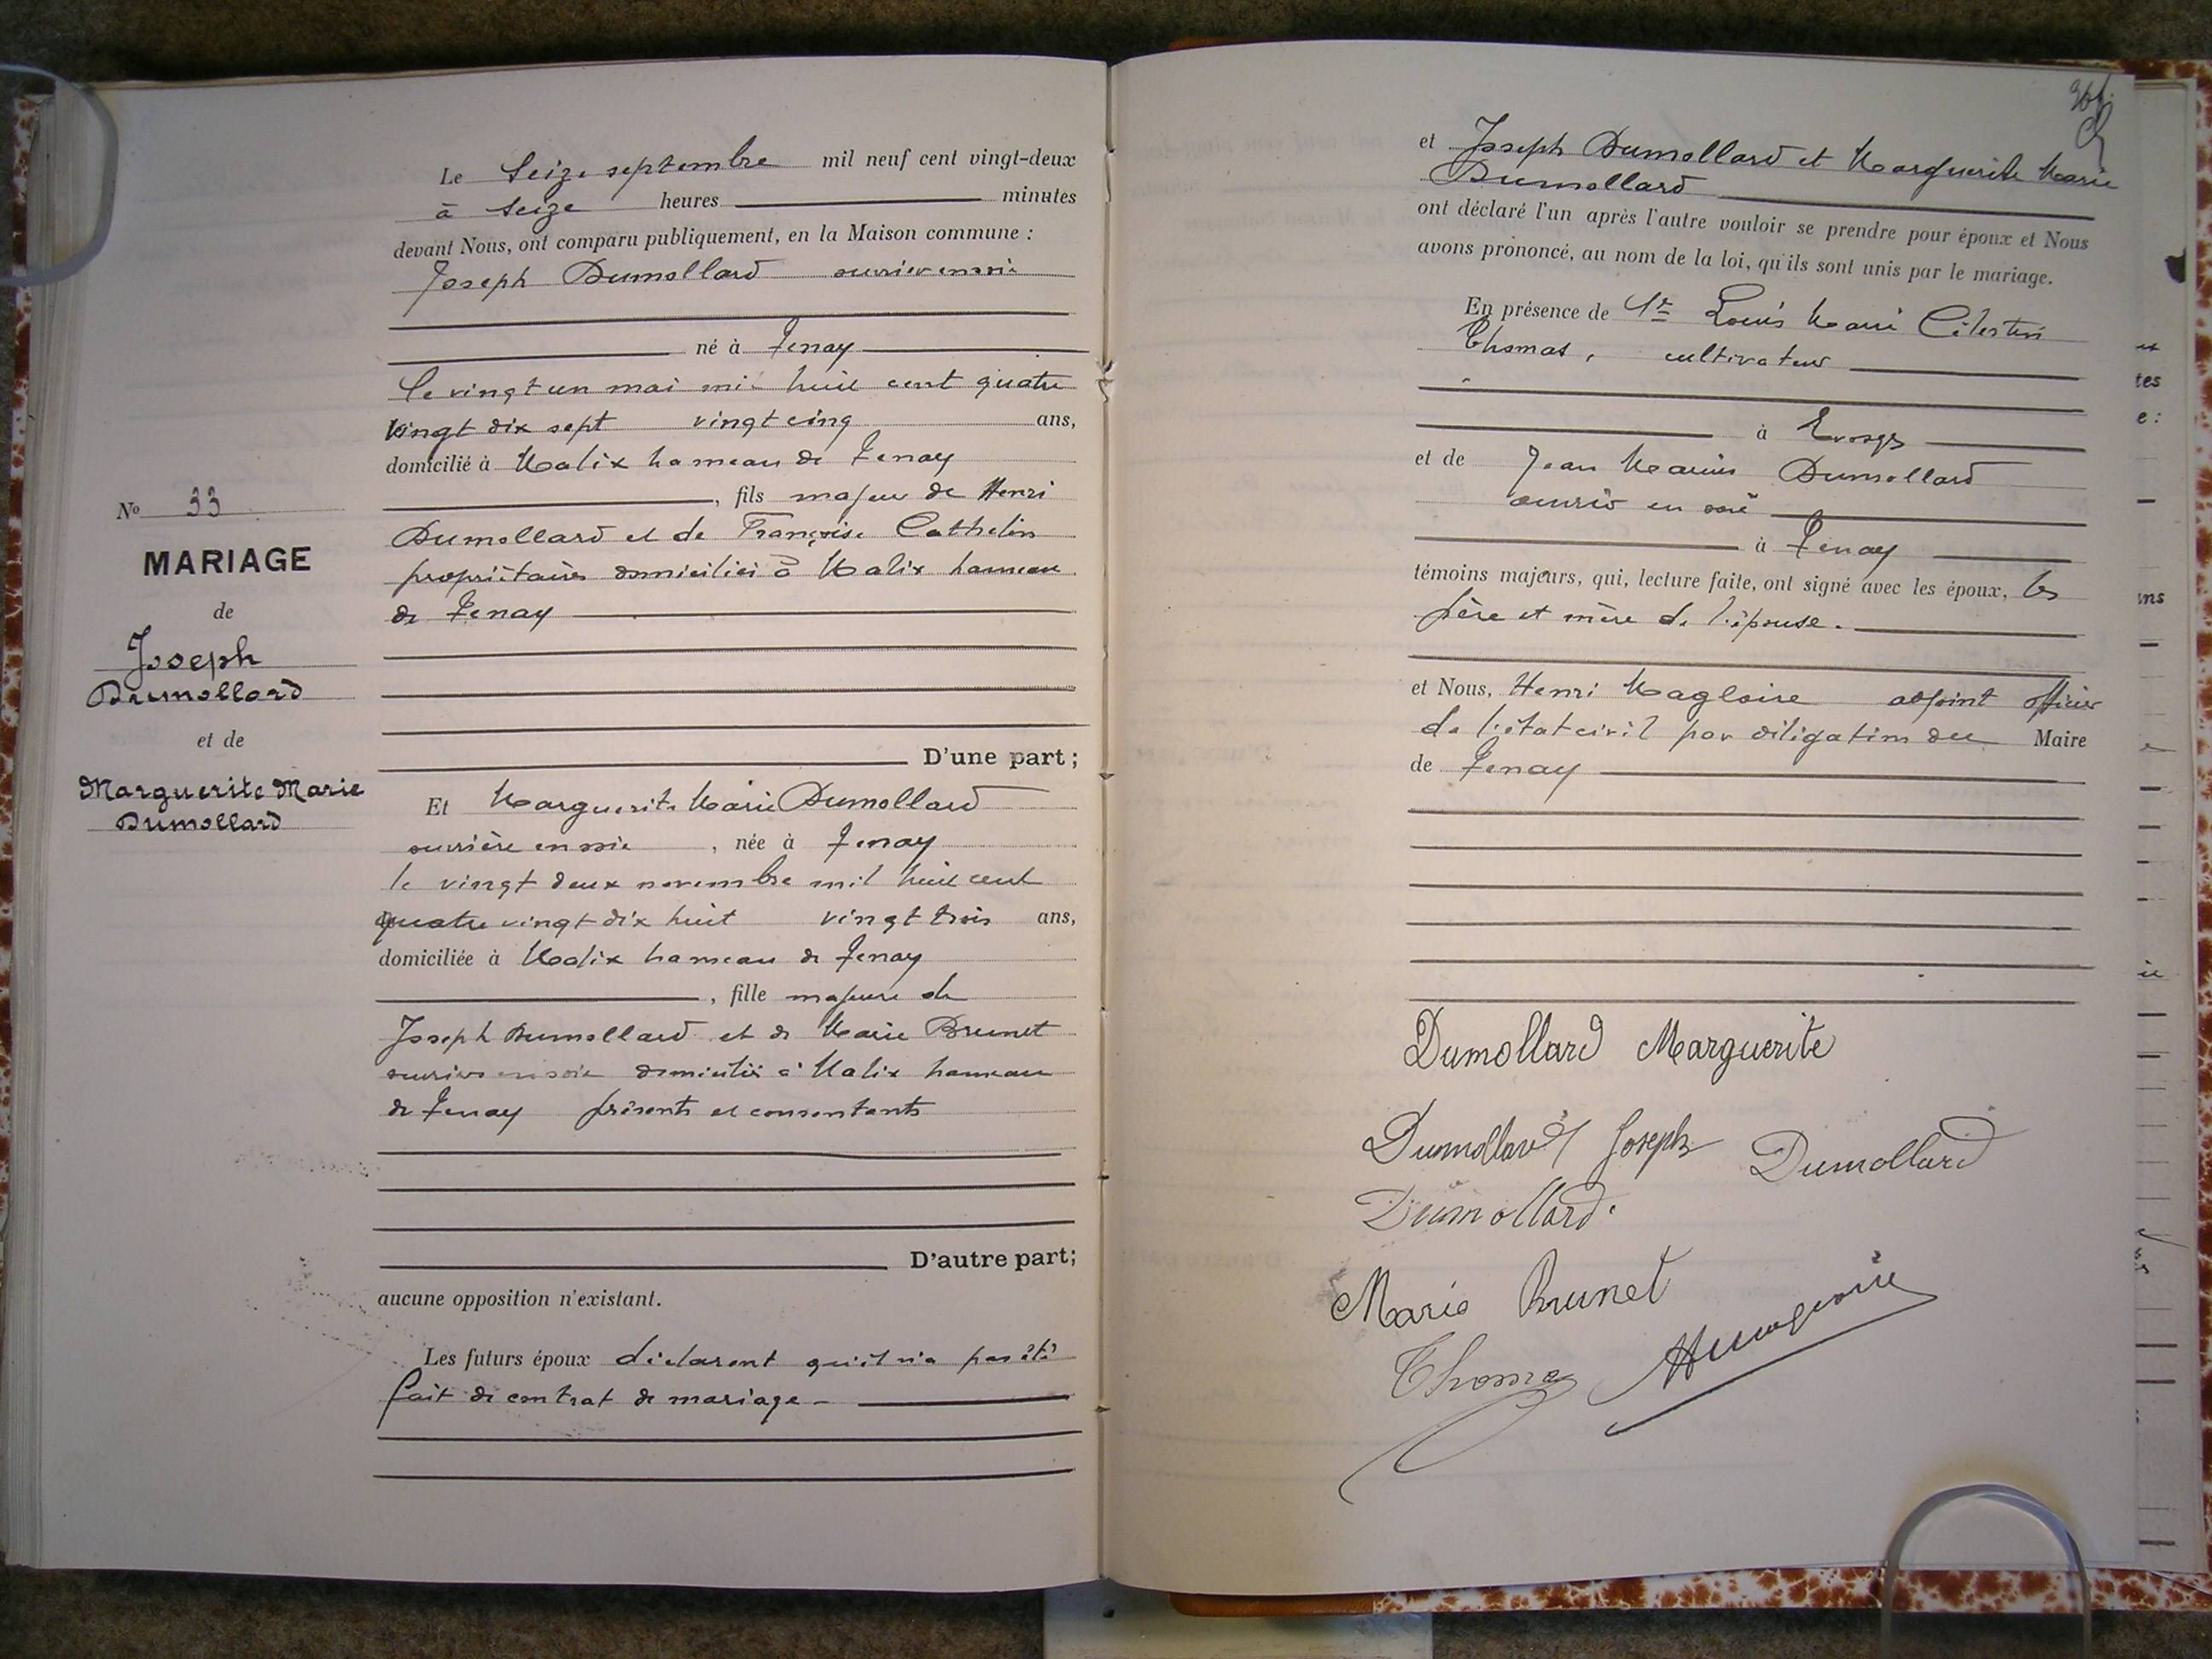 Le Seize septembre mil neuf cent vingt-deux
à seize heures minutes
devant Nous, ont comparu publiquement, en la Maison commune :
Joseph Dumollard ouvrier en soie
né à Tenay
le vingt un mai mil huit cent quatre
vingt dix sept vingt cinq ans,
domicilié à Malix hameau de Tenay
, fils majeur de Henri
Dumollard et de Françoise Cathelin
propriétaires domiciliés à Malix hameau
de Tenay
D'une part ;
No 33
MARIAGE
de
Joseph
Dumollard
et de
Marguerite Marie
Dumollard
Et Marguerite Marie Dumollard
ouvrière en soie , née à Tenay
le vingt deux novembre mil huit cent
quatre vingt dix huit vingt trois ans,
domiciliée à Malix hameau de Tenay
, fille majeure de
Joseph Dumollard et de Marie Brunet
ouvriers en soie domiciliés à Malix hameau
de Tenay présents et consentants
D'autre part;
aucune opposition n'existant.
Les futurs époux déclarent qu'il n'a pas été
fait de contrat de mariage -
et Joseph Dumollard et Marguerite Marie
Dumollard
ont déclaré l'un après l'autre vouloir se prendre pour époux et Nous
avons prononcé, au nom de la loi, qu'ils sont unis par le mariage.
En présence de 1er Louis Marie Célestin
Thomas, cultivateur
à Evosges
et de Jean Marius Dumollard
ouvrier en soie
à Tenay
témoins majeurs, qui, lecture faite, ont signé avec les époux, les
père et mère de l'épouse.
et Nous, Henri Magloire adjoint officier
de l'état civil par délégation du Maire
de Tenay
Dumollard Marguerite
Dumollard Joseph Dumollard
Dumollard.
Marie Brunet
Thomas